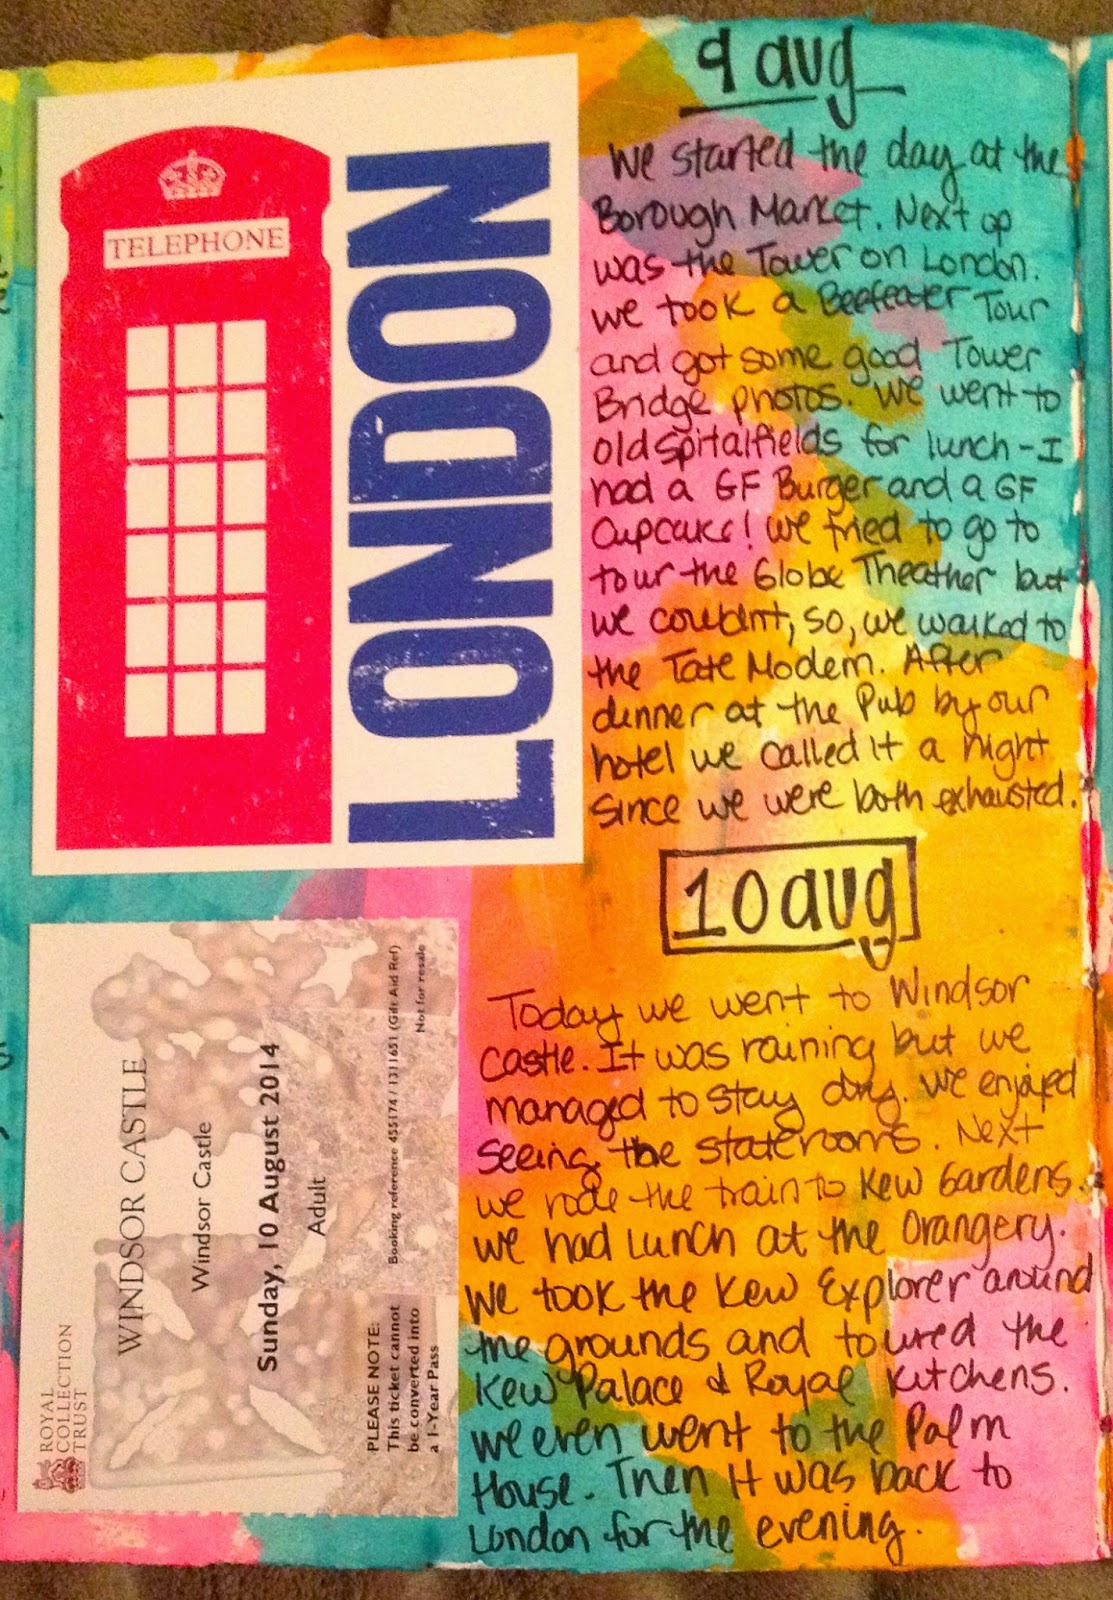 TELEPHONE
LONDON
9 aug
We started the day at the
Borough Market. Next op
was the Tower on London.
We took a Beefeater Tour
and got some good Tower
Bridge photos. We went to
old Spitalfields for lunch - I
had a GF Burger and a GF
Cupcake! We tried to go to
tour the Globe Theather but
we couldnt, so, we walked to
the Tate Modern. After
dinner at the Pub by our
hotel we called it a night
since we were both exhausted.
10 aug
Today we went to Windsor
castle. It was raining but we
managed to stay dry. We enjoyed
seeing the staterooms. Next
we rode the train to Kew Gardens.
We had lunch at the Orangery.
We took the Kew Explorer around
the grounds and toured the
Kew Palace & Royal Kitchens.
We even went to the Palm
House. Then it was back to
London for the evening.
ROYAL
COLLECTION
TRUST
WINDSOR CASTLE
Windsor Castle
Sunday, 10 August 2014
Adult
PLEASE NOTE:
This ticket cannot
be converted into
a 1-Year Pass
Booking reference 455174 / 1311651 (Gift Aid Ref)
Not for resale